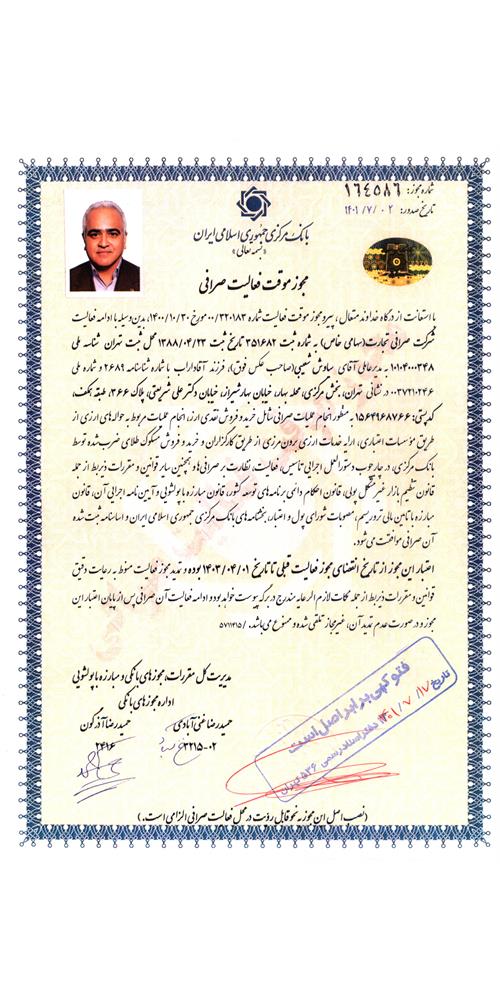 شماره مجوز: ۱۶۴۵۸۶
تاریخ صدور: ۱۴۰۱/۷/۰۲
بانک مرکزی جمهوری اسلامی ایران
«بسمه تعالی»
مجوز موقت فعالیت صرافی
با استعانت از درگاه خداوند متعال، پیرو مجوز موقت فعالیت شماره ۰۰/۳۲۰۱۸۳ مورخ ۱۴۰۰/۱۰/۳۰، بدین وسیله با ادامه فعالیت
شرکت صرافی تجارت (سهامی خاص) به شماره ثبت ۳۵۱۶۸۲ تاریخ ثبت ۱۳۸۸/۰۴/۲۳ محل ثبت تهران شناسه ملی
۱۰۱۰۴۰۰۰۳۴۸ به مدیرعاملی آقای سیاوش شمیمی (صاحب عکس فوق)، فرزند آقاداراب با شماره شناسنامه ۲۶۸۹ و ملی
۰۰۳۷۲۱۰۲۴۶ در نشانی تهران، بخش مرکزی، محله بهار، خیابان بهار شیراز، خیابان دکتر علی شریعتی، پلاک ۳۶۶، طبقه همکف،
کدپستی: ۱۵۶۴۹۶۸۷۶۶ به منظور انجام عملیات صرافی شامل خرید و فروش نقدی ارز، انجام عملیات مربوط به حواله های ارزی از
طریق مؤسسات اعتباری، ارائه خدمات ارزی برون مرزی از طریق کارگزاران و خرید و فروش مسکوک طلای ضرب شده توسط
بانک مرکزی، در چارچوب دستورالعمل اجرایی تاسیس، فعالیت و نظارت بر صرافی ها و همچنین سایر قوانین و مقررات ذیربط از جمله
قانون تنظیم بازار غیرمتشکل پولی، قانون احکام دائمی برنامه های توسعه کشور، قانون مبارزه با پولشویی و آیین نامه اجرایی آن، قانون
مبارزه با تامین مالی تروریسم، مصوبات شورای پول و اعتبار، بخشنامه های بانک مرکزی جمهوری اسلامی ایران و اساسنامه ثبت شده
آن صرافی موافقت می شود.
اعتبار این مجوز از تاریخ انقضای مجوز فعالیت قبلی تا تاریخ ۱۴۰۳/۰۴/۰۱ بوده و تمدید مجوز فعالیت منوط به رعایت دقیق
قوانین و مقررات ذیربط از جمله نکات لازم الرعایه مندرج در برگه پیوست خواهد بود و ادامه فعالیت آن صرافی پس از پایان اعتبار این
مجوز و در صورت عدم تمدید آن، غیرمجاز تلقی شده و ممنوع می باشد. /۵۷۱۱۴۱۵
مدیریت کل مقررات، مجوزهای بانکی و مبارزه با پولشویی
اداره مجوزهای بانکی
حمیدرضا غنی آبادی حمیدرضا آذرگون
۳۲۱۵-۰۲ ۲۴۱۶
فتوکپی برابر اصل است
تاریخ ۱۴۰۱/۷/۱۷
دفتر اسناد رسمی ۵۳۶ تهران
(نصب اصل این مجوز به نحو قابل رؤیت در محل فعالیت صرافی الزامی است.)